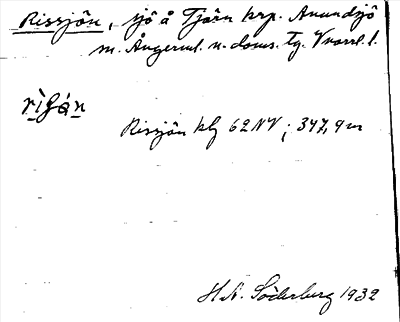 Rissjön, sjö å Tjärn krp. Anundsjö
m. Ångerml. n. doms. Tg. Vnorrl. l.
Rissjön kbl 62NV; 347,9 m
H. N. Söderberg 1932